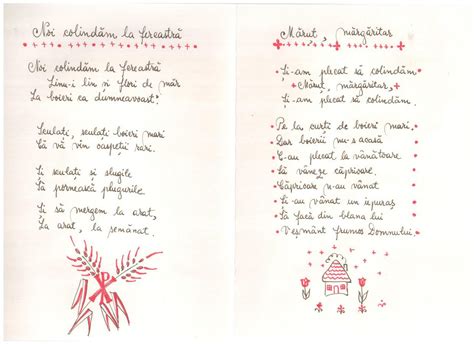 Noi colindăm la fereastră
Noi colindăm la fereastră
Linu-i lin si flori de măr
La boieri ca dumneavoast.
Sculați, sculați boieri mari
Că vă vin oaspeți rari.
Și sculați și slugile
Să pornească plugurile.
Și să mergem la arat,
La arat, la semănat.
Mărut, mărgăritar
Și-am plecat să colindăm
Mărut, mărgăritar,
Și-am plecat să colindăm.
Pe la curți de boieri mari.
Dar boierii nu-s acasă
C-au plecat la vânătoare
Să vâneze căprioare.
Căprioare n-au vânat
Și-au vânat un iepuraș
Să facă din blana lui
Veșmânt frumos Domnului.